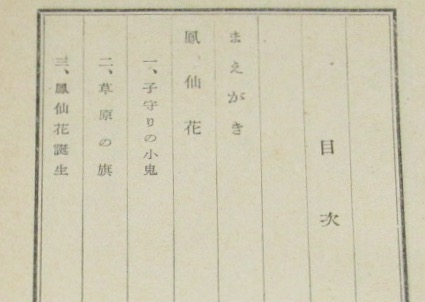 目次
まえがき
鳳仙花
一、子守りの小鬼
二、草原の旗
三、鳳仙花誕生